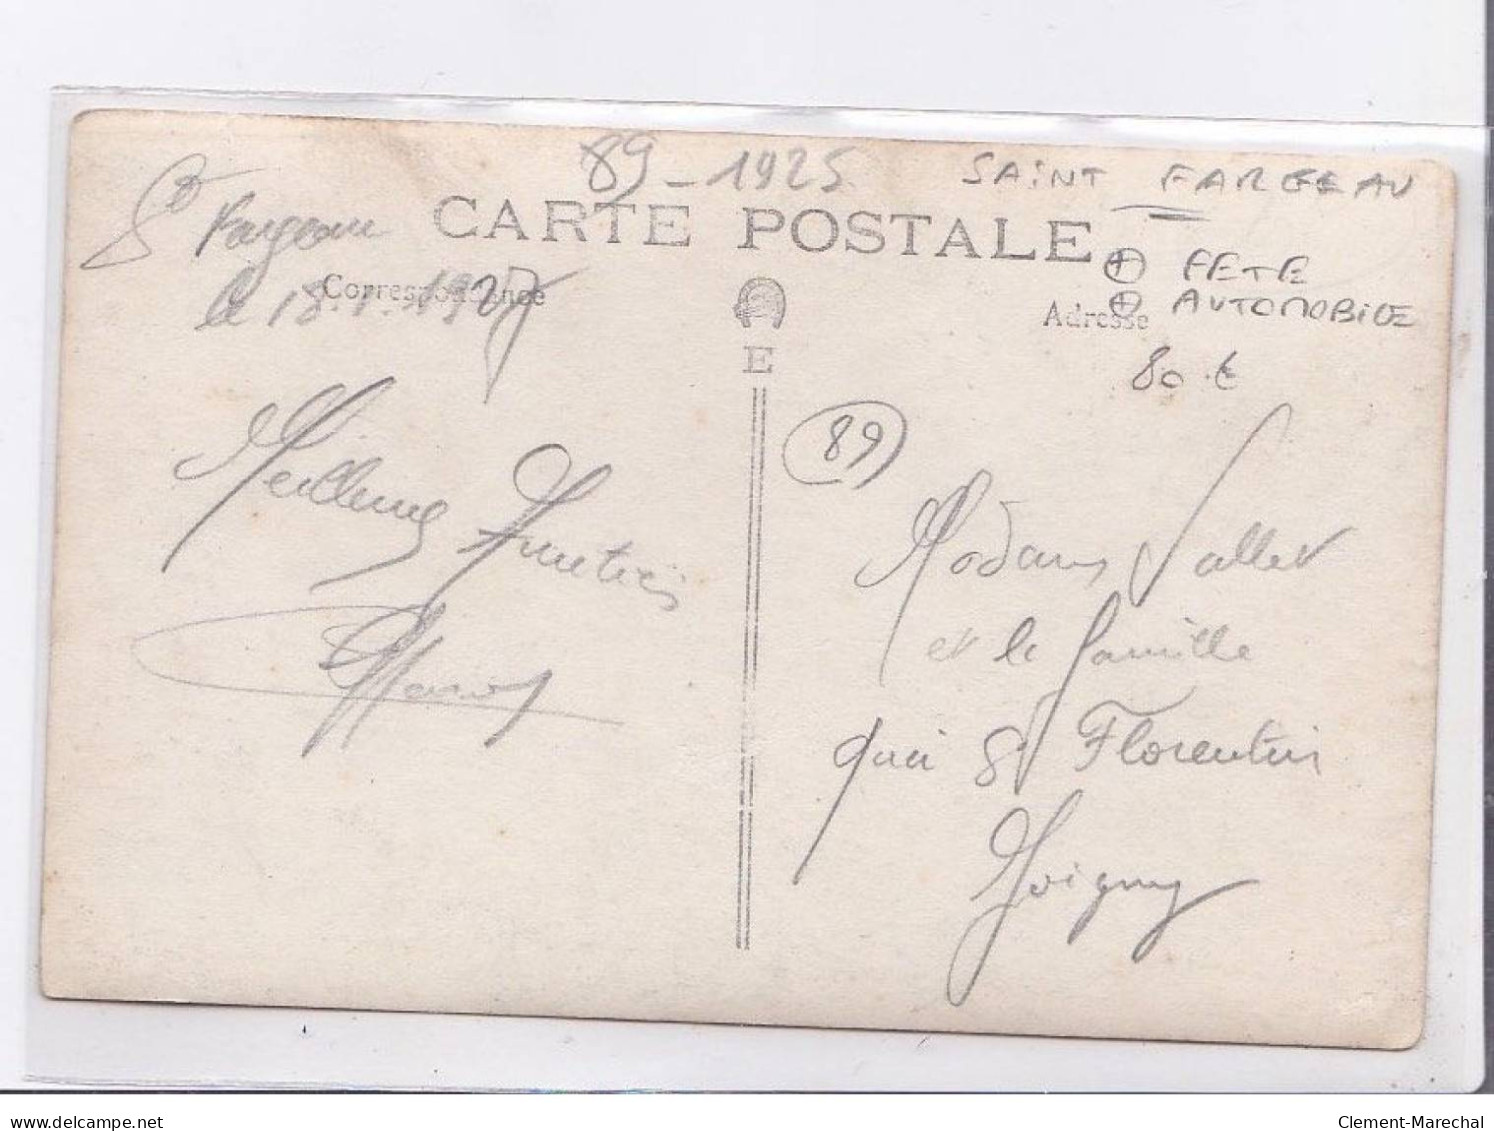 89-1925
SAINT FARGEAU
CARTE POSTALE
+ FETE
+ AUTOMOBILE
80 €
St Fargeau
le 18.1.1927
Correspondance
Adresse
E
89
Meilleures Amitiés
Madame Vallet
et la famille
quai St Florentin
Joigny
delcampe.net
Clement-Marechal